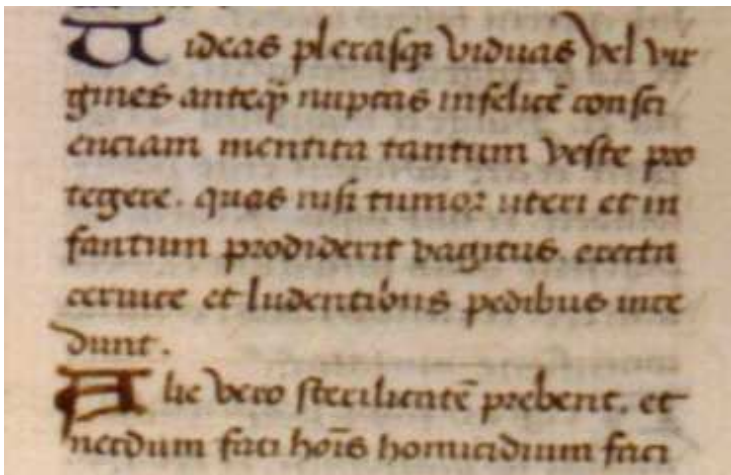 Uideas plerasq; viduas vel vir
gines anteq̃ nuptas infelicē consci
enciam mentita tantum veste pro
tegere. quas nisi tumor uteri et in
fantium prodiderit vagitus. erecta
ceruice et ludentibus pedibus ince
dunt.
Alie vero sterilitatē prebent. et
necdum sati hoīs homicidium faci